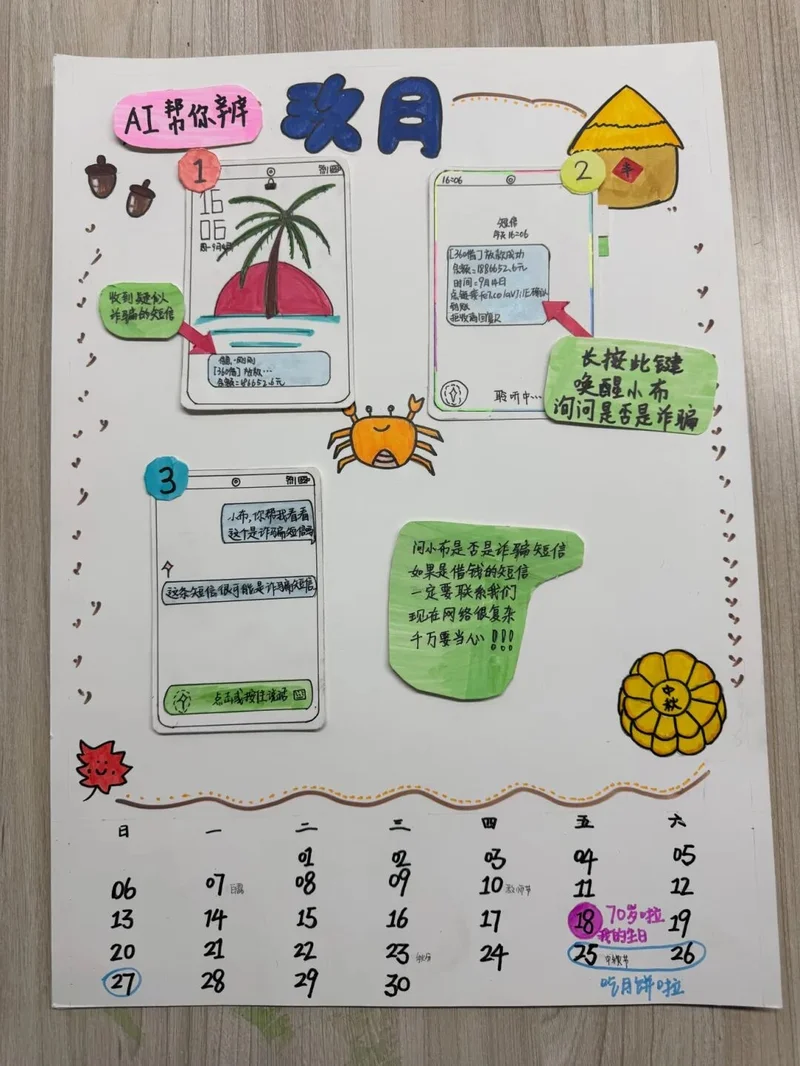 AI 帮你辨
玖月
丰
1
16
06
收到疑似
诈骗的短信
[360借] 放款…
金额=186652.6元
2
16:06
短信
今天 16:06
[360借] 放款成功
金额=186652.6元
时间=9月14日
拒收请回复R
聆听中…
长按此键
唤醒小布
询问是否是诈骗
3
小布,你帮我看看
这个是诈骗短信吗
这条短信很可能是诈骗短信
点击或按住说话
问小布是否是诈骗短信
如果是借钱的短信
一定要联系我们
现在网络很复杂
千万要当心!!!
中秋
日 一 二 三 四 五 六
01 02 03 04 05
06 07 白露 08 09 10 教师节 11 12
13 14 15 16 17 18 70岁啦 19
我的生日
20 21 22 23 秋分 24 25 中秋节 26
27 28 29 30 吃月饼啦